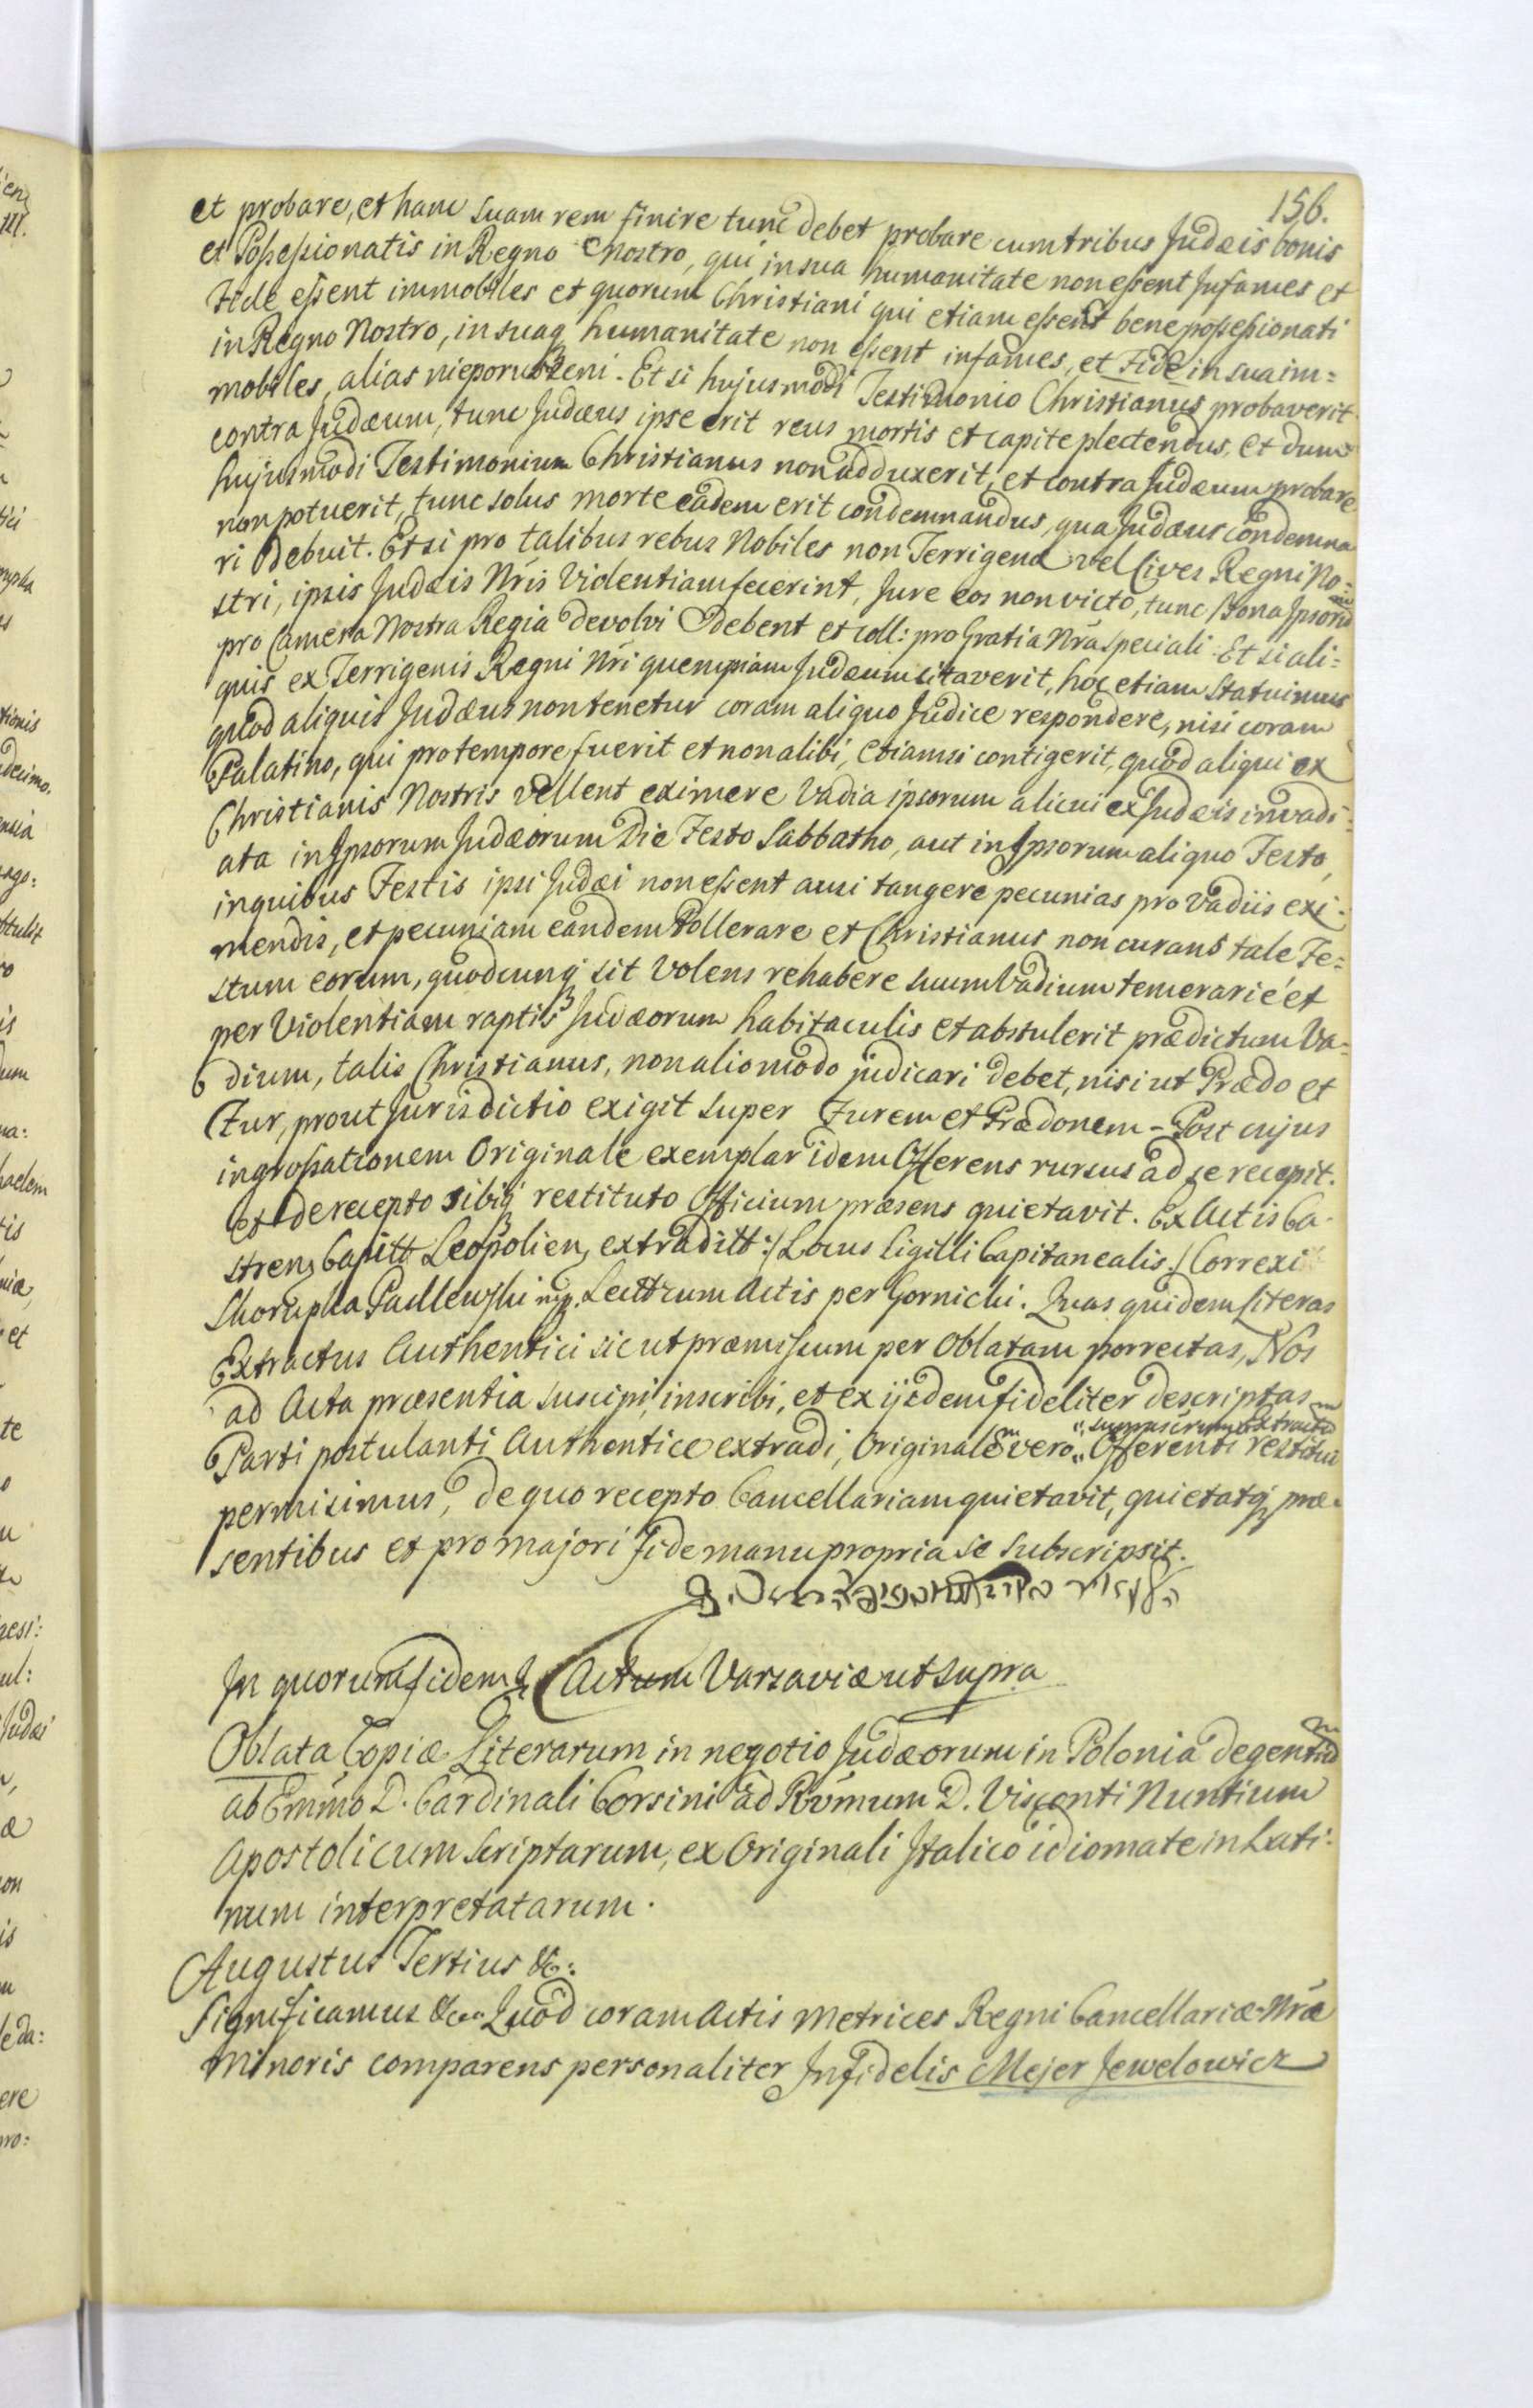 156.
et probare, et hanc suam rem finire tunc debet probare cum tribus Judæis bonis
et Possessionatis in Regno Nostro, qui in sua humanitate non essent Infames et
Fide essent immobiles et quorum Christiani qui etiam essent bene possessionati
in Regno Nostro, in suaq humanitate non essent infames, et Fide in sua im=
mobiles, alias nieporuszeni. Et si hujusmodi Testimonio Christianus probaverit
contra Judæum, tunc Judæus ipse erit reus mortis et capite plectendus, et dum
hujusmodi Testimonium Christianus non adduxerit, et contra Judæum probare
non potuerit, tunc solus morte eadem erit condemnandus, qua Judæus condemna
ri debuit. Et si pro talibus rebus Nobiles non Terrigenæ vel Cives Regni No=
stri, ipsis Judæis Nris Violentiam fecerint, Jure eos non victo, tunc Bona Ipsorum
pro Camera Nostra Regia devolvi debent et coll: pro Gratia Nra speciali. Et si ali=
quis ex Terrigenis Regni Nri quempiam Judæum citaverit, hoc etiam statuimus
quod aliquis Judæus non tenetur coram aliquo Judice respondere, nisi coram
Palatino, qui pro tempore fuerit et non alibi, etiamsi contigerit, quod aliqui ex
Christianis Nostris vellent eximere Vadia ipsorum alicui ex Judæis invadi=
ata in Ipsorum Judæorum Die Festo Sabbatho, aut in Ipsorum aliquo Festo,
in quibus Festis ipsi Judæi non essent ausi tangere pecunias pro Vadiis exi=
mendis, et pecuniam eandem tollerare et Christianus non curans tale Fe=
stum eorum, quodcunq sit Volens rehabere suum Vadium temerarie et
per Violentiam raptis Judæorum habitaculis et abstulerit prædictum Va=
dium, talis Christianus, non alio modo judicari debet, nisi ut Prædo et
Fur, prout Jurisdictio exigit super Furem et Prædonem - Post cujus
ingrossationem Originale exemplar idem Offerens rursus ad se recepit.
et de recepto sibiq restituto Officium præsens quietavit. Ex Actis Ca-
stren, Capitt Leopolien, extraditt:/ Locus Sigilli Capitanealis./ Correxi
Skorupka Padlewski mp. Lectt cum Actis per Gornicki. Quas quidem Literas
Extractus Authentici sicut præmissum per Oblatam porrectas, Nos
ad Acta præsentia suscipi, inscribi, et ex ijsdem fideliter descriptas
"suprascriptum Extractum
Parti postulanti Authentice extradi, Originalem vero " Offerenti restitui
permisimus, de quo recepto Cancellariam quietavit, quietatq præ-
sentibus et pro majori fide manu propria se subscripsit.
In quorum fidem & Actum Varsaviæ ut supra
Oblata Copiæ Literarum in negotio Judæorum in Polonia degentium
ab Emmo D. Cardinali Corsini ad Rvmum D. Visconti Nuntium
Apostolicum scriptarum, ex Originali Italico idiomate in Lati:
num interpretatarum.
Augustus Tertius &c:
Significamus &c: Quod coram Actis Metrices Regni Cancellariæ Nræ
Minoris comparens personaliter Infidelis Mejer Jewelowicz